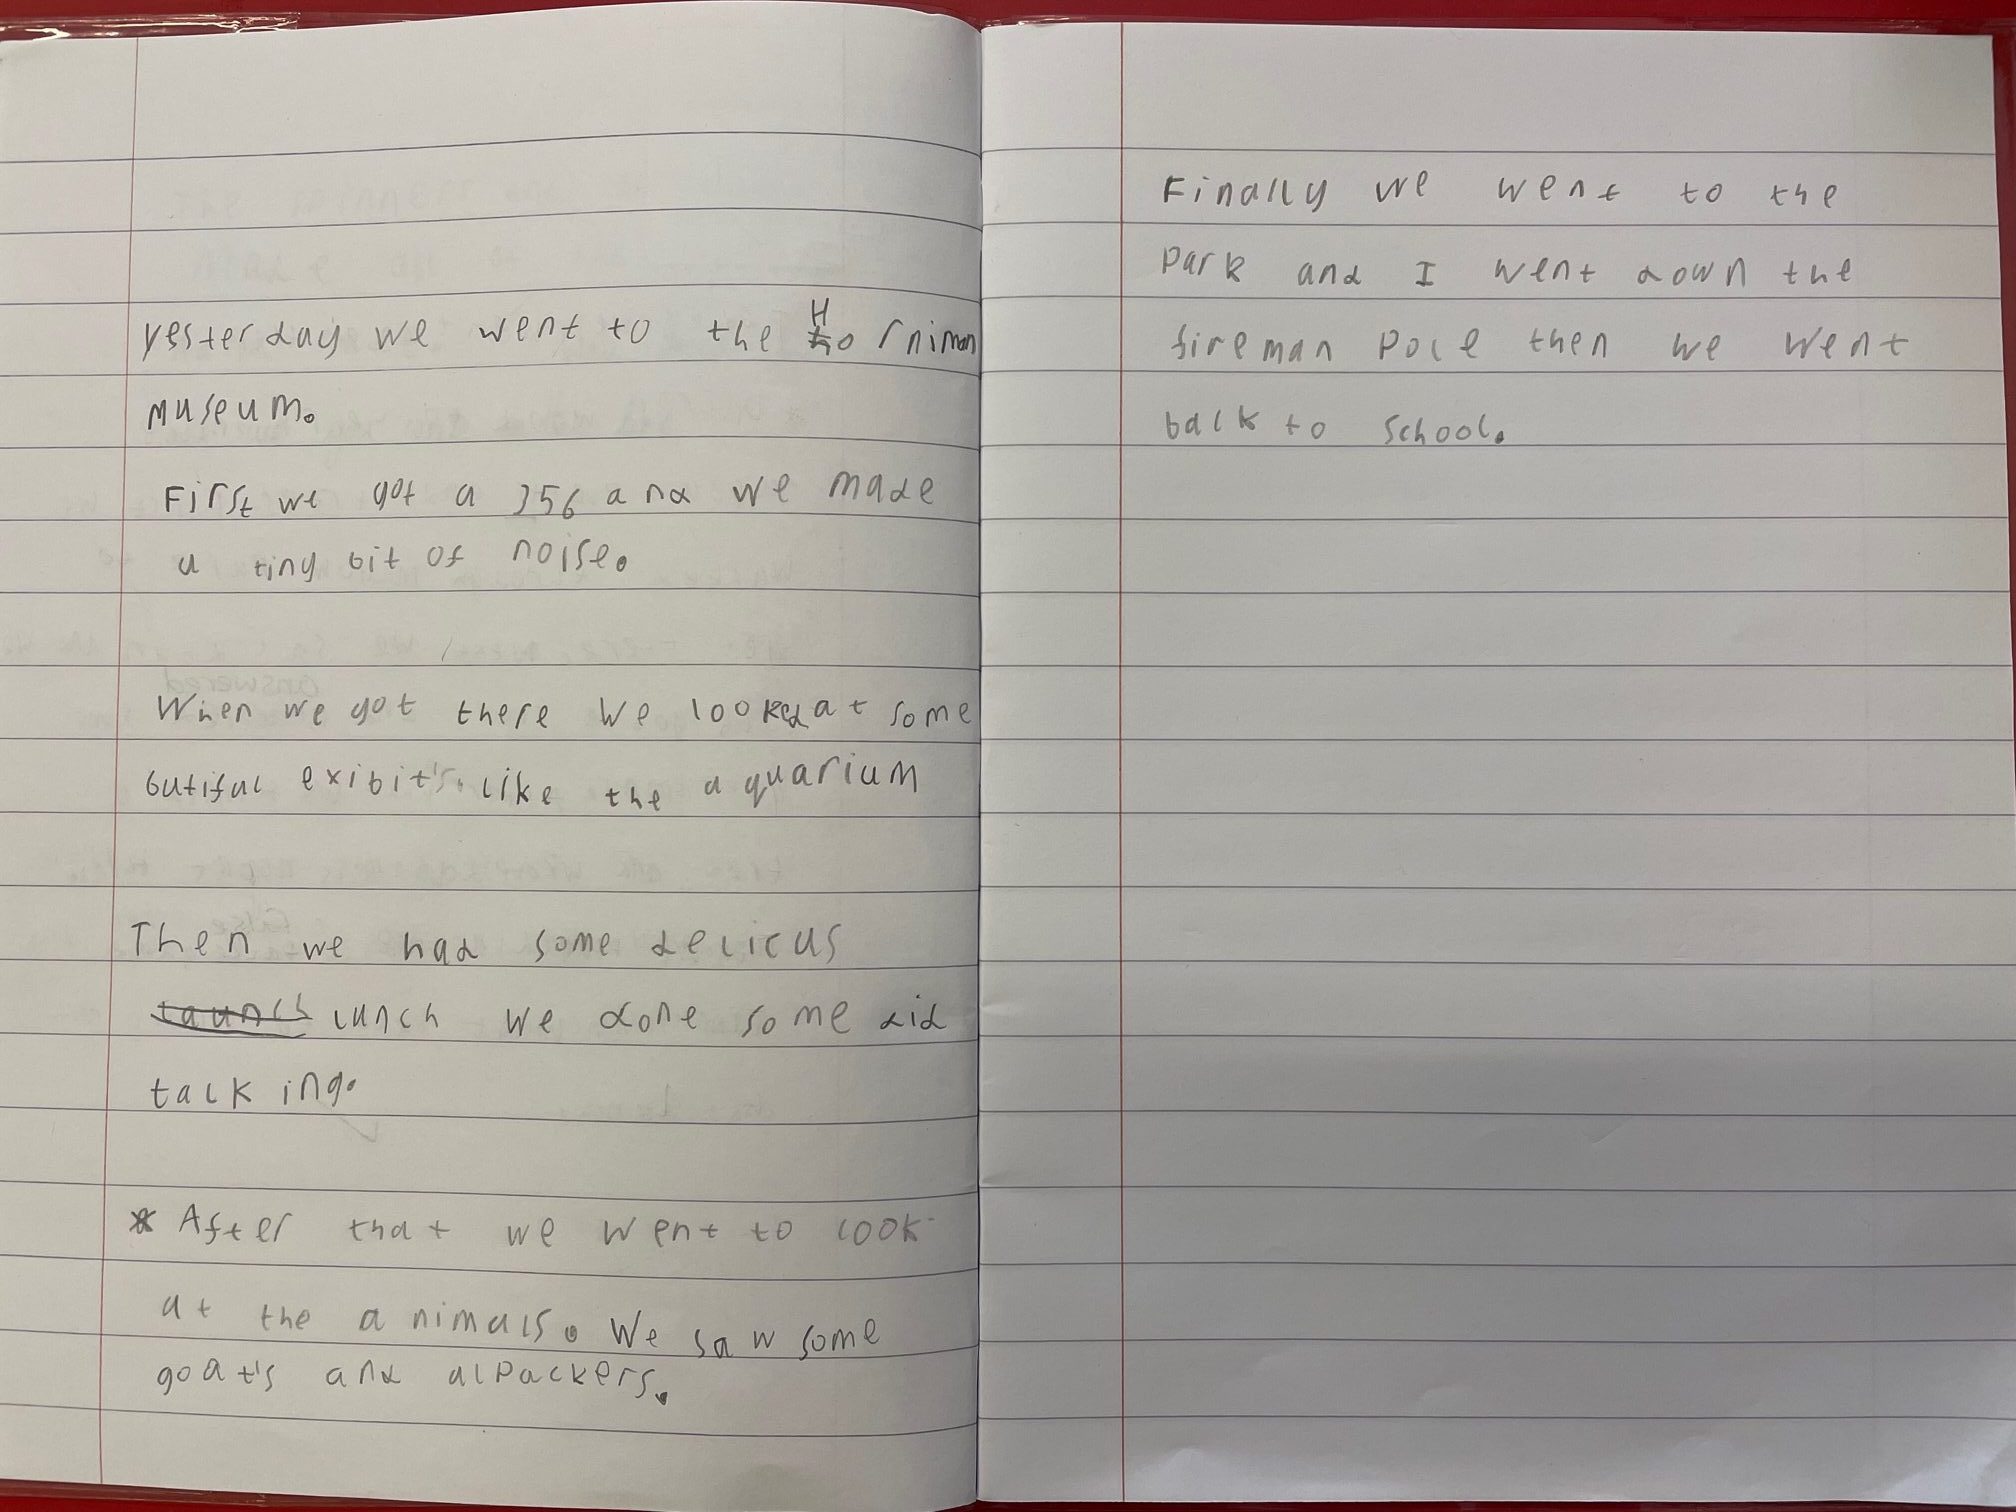 yesterday we went to the Horniman
museum.
First we got a 356 and we made
a tiny bit of noise.
When we got there we looked at some
butiful exibit's. like the aquarium
Then we had some delicus
lunch we done some did
talking.
* After that we went to look
at the animals. We saw some
goat's and alpackers.
Finally we went to the
park and I went down the
fireman pole then we went
back to school.